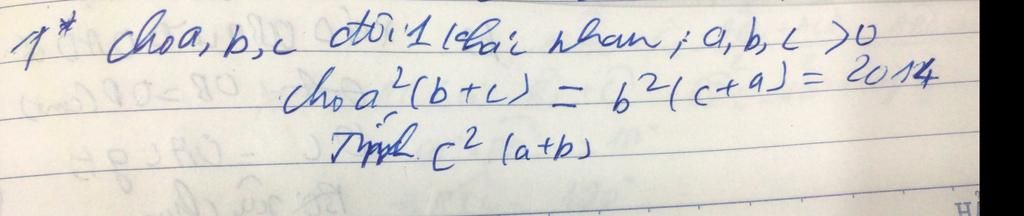 1* Cho a, b, c đôi 1 khác nhau ; a, b, c > 0
cho a²(b+c) = b²(c+a) = 2014
Tính c²(a+b)